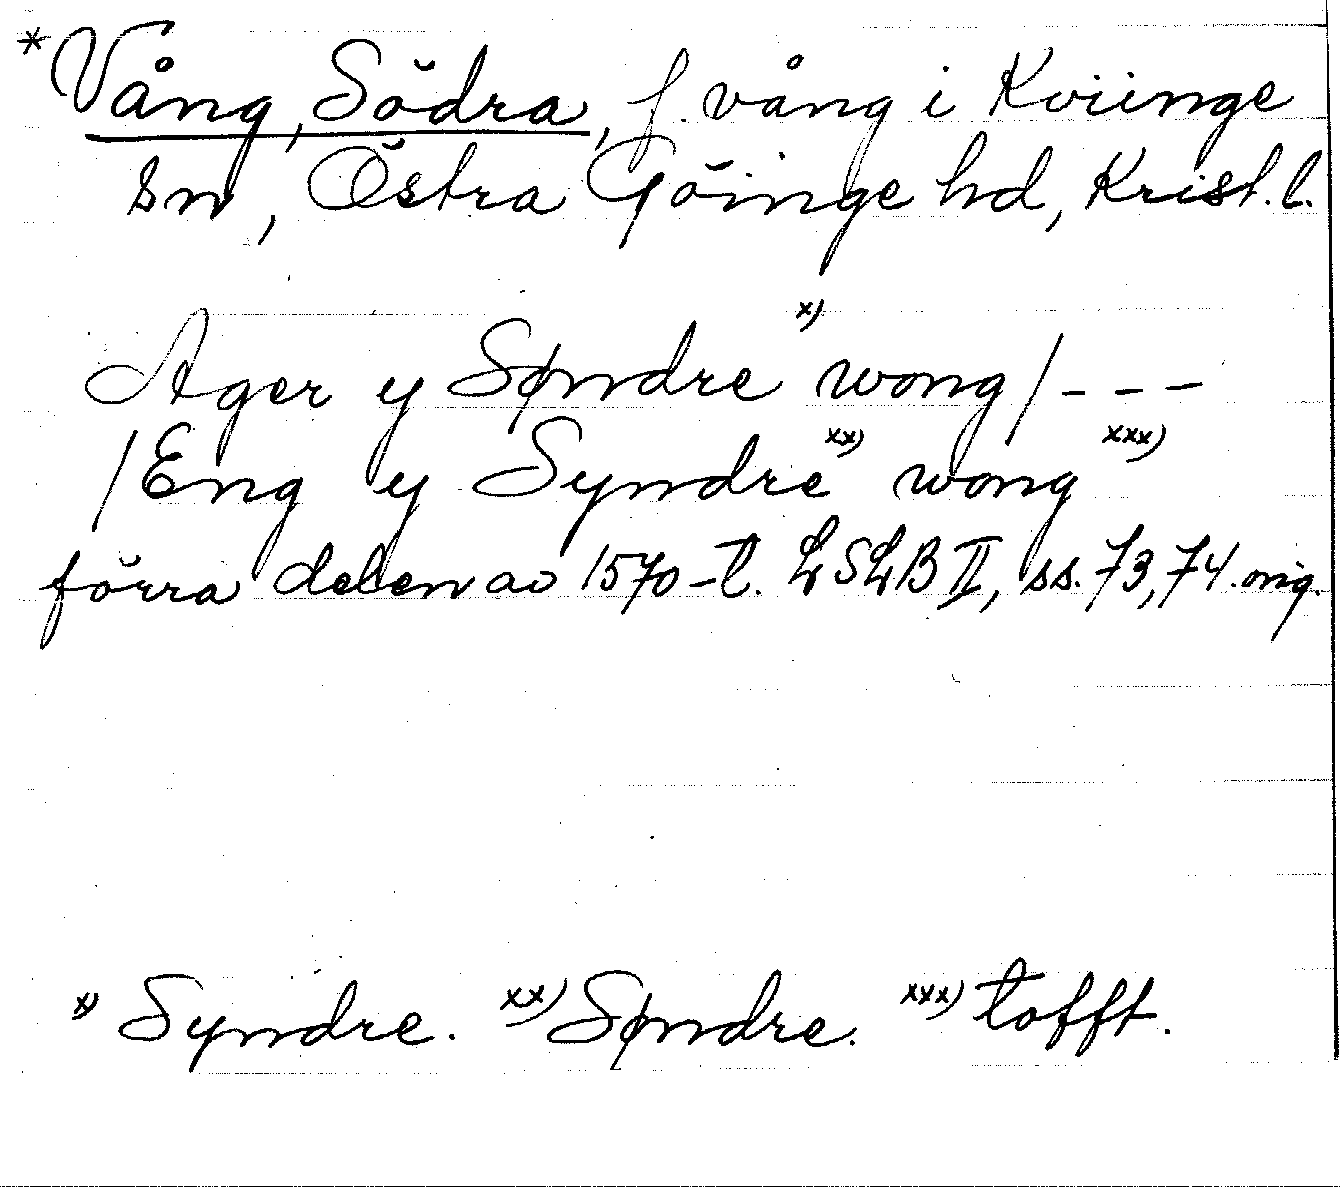 *Vång, Södra, f. vång i Kviinge
sn, Östra Göinge hd, Krist. l.
Ager y Søndre x) wong / - - -
/ Eng y Syndre xx) wong xxx)
förra delen av 1570-t. LSLB II, ss. 73, 74. orig.
x) Syndre. xx) Søndre. xxx) tofft.